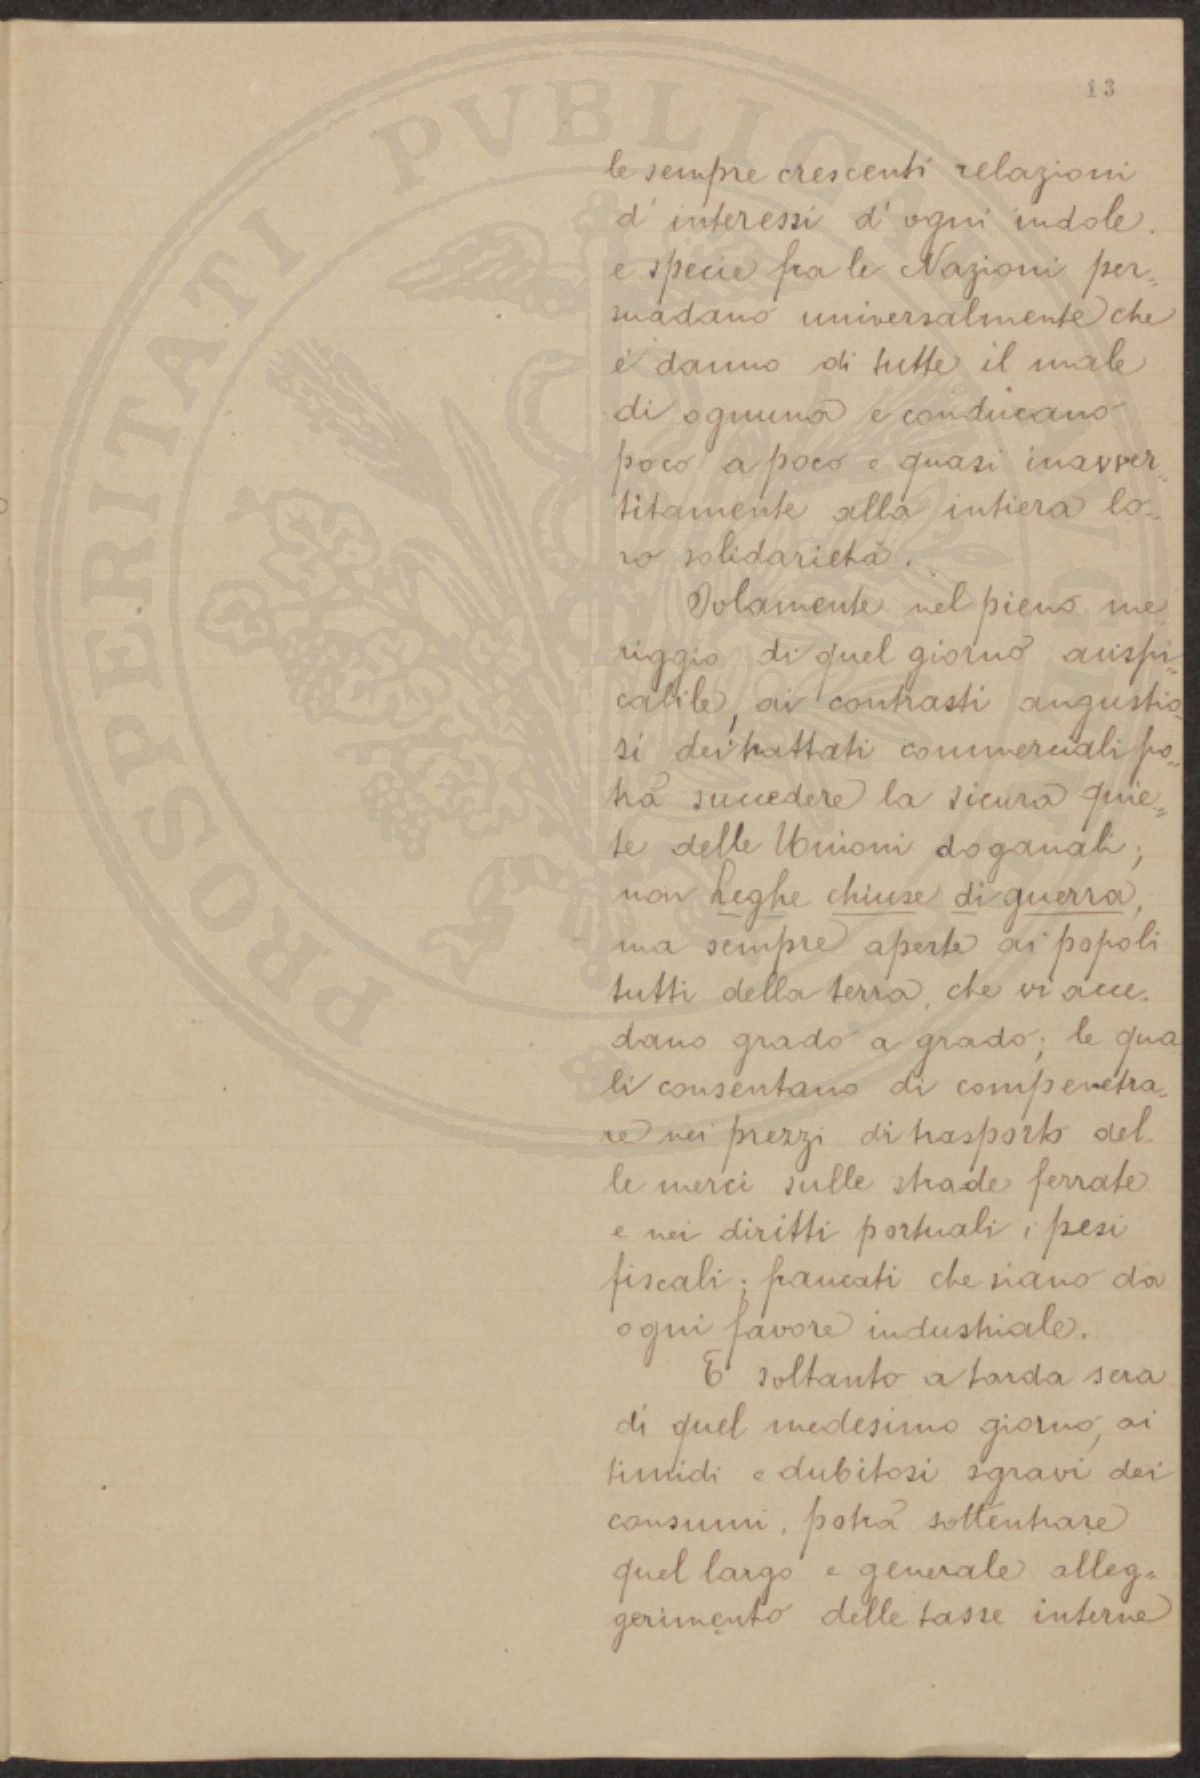 13
PROSPERITATI PVBLICAE
le sempre crescenti relazioni
d'interessi d'ogni indole.
e specie fra le Nazioni per=
suadano universalmente che
è danno di tutte il male
di ognuna e conducano
poco a poco e quasi inavver=
titamente alla intiera lo=
ro solidarietà.
Solamente nel pieno me
riggio di quel giorno auspi=
cabile, ai contrasti angustio=
si dei trattati commerciali po=
trà succedere la sicura quie=
te delle Unioni doganali;
non Leghe chiuse di guerra,
ma sempre aperte ai popoli
tutti della terra, che vi acce.
dano grado a grado; le qua
li consentano di compenetra=
re nei prezzi di trasporto del
le merci sulle strade ferrate
e nei diritti portuali i pesi
fiscali; francati che siano da
ogni favore industriale.
E soltanto a tarda sera
di quel medesimo giorno, ai
timidi e dubitosi sgravi dei
consumi, potrà sottentrare
quel largo e generale alleg=
gerimento delle tasse interne